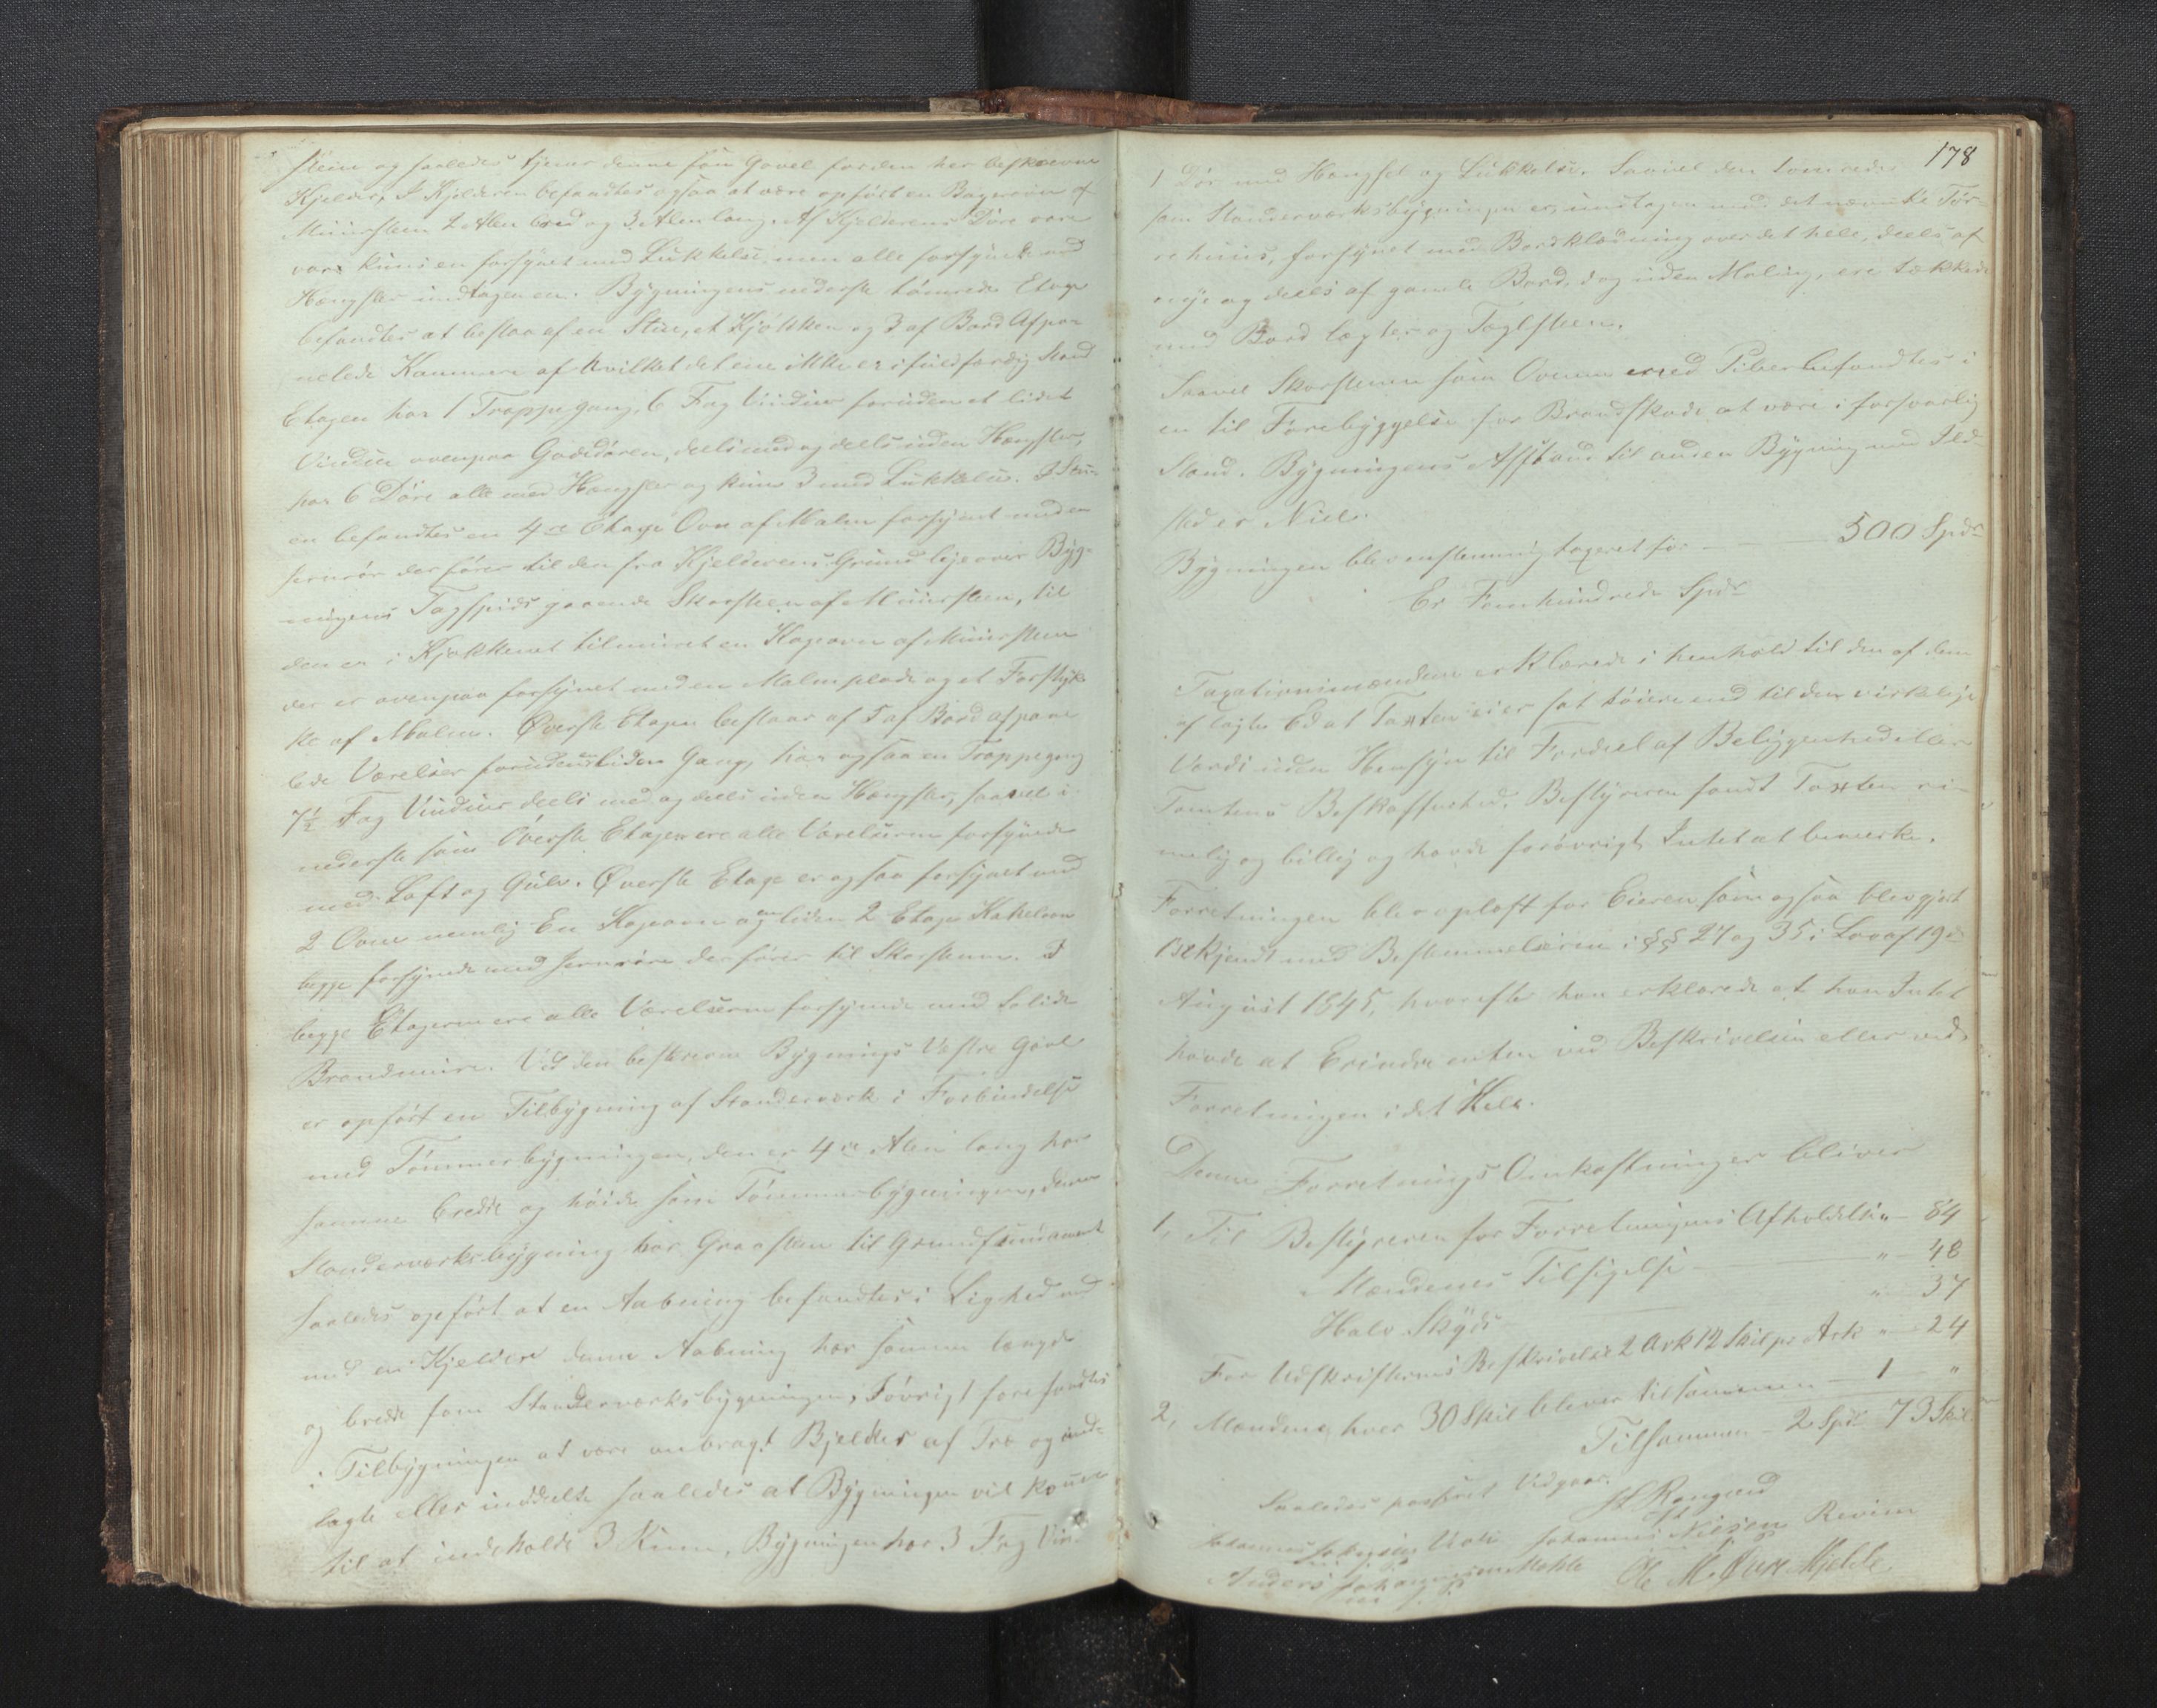 steen og saaledes tjener denne som Gavel for den her beskrevne
Kjelder, I Kjelderen befandtes ogsaa at være opført en Bagerovn af
Muursteen 2 Alen bred og 3 Alen lang. Af Kjelderens Døre vare
vare kuns en forsynet med Lukkelse, men alle forsynede med
Hængsler undtagen en. Bygningens nederste tømrede Etage
befandtes at bestaa af en Stue, et Kjøkken og 3 af Bord Afpan
nelede Kammere af hvilket det ene ikke er i fuldfærdig Stand
Etagen har 1 Trappegang, 6 Fag Vinduer foruden et lidet
Vindue ovenpaa Gadedøren, deels med og deels uden Hængsler,
har 6 Døre alle med Hængsler og kuns 3 med Lukkelse. I Stu-
en befandtes en 4re Etages Ovn af Malm forsynet med en
Jernrør der fører til den fra Kjelderens Grund lige over Byg-
ningens Tagspids gaaende Skorsteen af Muursteen, til
den er i Kjøkkenet tilmuret en Kageovn af Muursteen
der er ovenpaa forsynet med en Malmplade og et Forstyk-
ke af Malm. Øverste Etage bestaar af 5 af Bord afpane
lede Værelser foruden en liden Gang, har ogsaa en Trappegang
7½ Fag Vinduer deels med og deels uden Hængsler, saavel i
nederste som Øverste Etage ere alle Værelserne forsynede
med Loft og Gulv. Øverste Etage er ogsaa forsynet med
2 Ovne nemlig En Kageovn og en liden 2 Etages Kakelovn
begge forsynede med Jernrøre der fører til Skorstenen. I
begge Etagerne ere alle Værelserne forsynede med solide
Brandmure. Ved den beskrevne Bygnings Vestre Gavl
er opført en Tilbygning af Standerværk i Forbindelse
med Tømmerbygningen, den er 4re Alen lang har
samme bredde og høide som Tømmerbygningen, denne
Standerværksbygning har Graasteen til Grundfundament
saaledes opført at en Aabning befandtes i Lighed med
med en Kjelder denne Aabning har samme længde
og bredde som Standerværksbygningen, I øvrigt forefandtes
i Tilbygningen at være anbragt Bjelker af Træ og ind-
lagte eller inddeelte saaledes at Bygningen vil komme
til at indeholde 3 Rum, Bygningen har 3 Fag Vin-
178
1 Dør med Hængsel og Lukkelse. Saavel den tømrede
som Standerværksbygningen er, undtagen med det nævnte Tør-
rehuus, forsynet med Bordklædning over det hele, deels af
nye og deels af gamle Bord, dog uden Maling, ere tækkede
med Bord lægter og Taglsteen.
Saavel Skorstenen som Ovnene med Piber befandtes i
en til Forebyggelse for Brandskade at være i forsvarlig
Stand. Bygningens Afstand til anden Bygning med Ild-
sted er Niel.
Bygningen blev enstemmig taxeret for — 500 Spdr
Er Femhundrede Spdr
Taxationsmændene erklærede i henhold til den af dem
aflagte Ed at Taxten ei er sat høiere end til den virkelige
Værdi uden Hensyn til Fordeel af Beliggenhed eller
Tomtens Beskaffenhed. Bestyreren fandt Taxten ri-
melig og billig og havde forøvrigt Intet at bemærke.
Forretningen blev oplæst for Eieren som ogsaa blev gjort
bekjendt med Bestemmelserne i §§ 27 og 35 i Lov af 19de
August 1845, hvorefter han erklærede at han Intet
havde at Erindre enten ved Beskrivelsen eller ved
Forretningen i det Hele.
Denne Forretnings Omkostninger bliver
1, Til Bestyreren for Forretningens Afholdelse „ — 84
Mændenes Tilsigelse — „ — 48
Halv Skyds — „ — 37
For Udskrifternes Beskrivelse 2 Ark 12 Skil pr Ark „ — 24
2, Mændene hver 30 Skil bliver tilsammen — 1 „
Tilsammen — 2 Spd 73 Skil
Saaledes passeret Vidgaar.
Johannes Nilsen Revim
Anders Johannessen Mohle Ole M. Øvre Mjelde